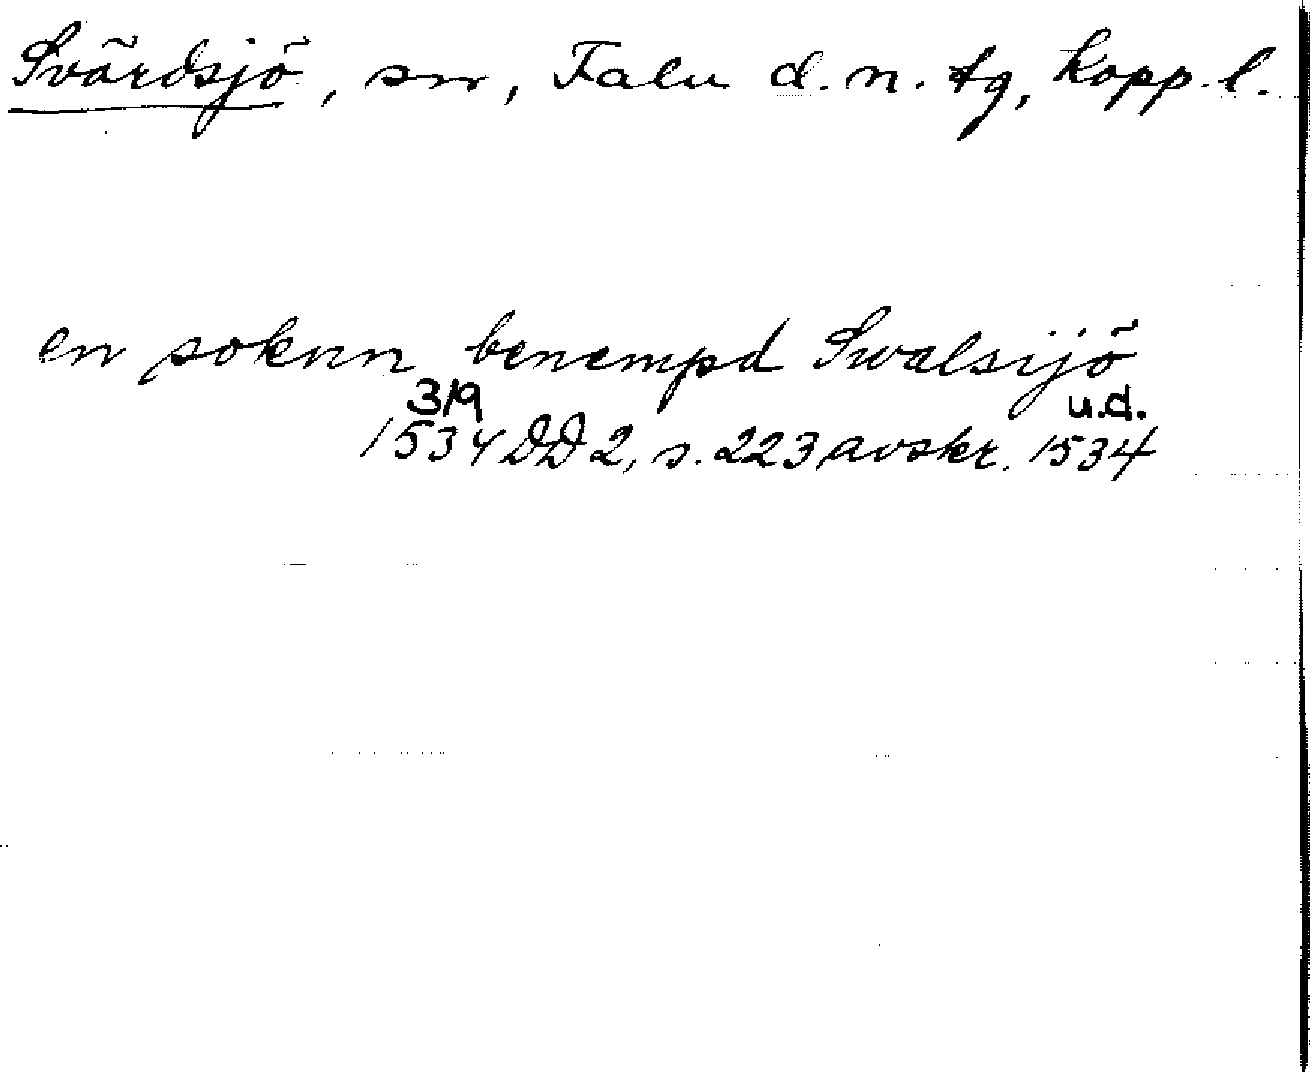 Svärdsjö, sn, Falu d. n. tg, Kopp. l.
en soknn benempd Swalsijö
3/9 u.d.
1534 DD 2, s. 223 avskr. 1534